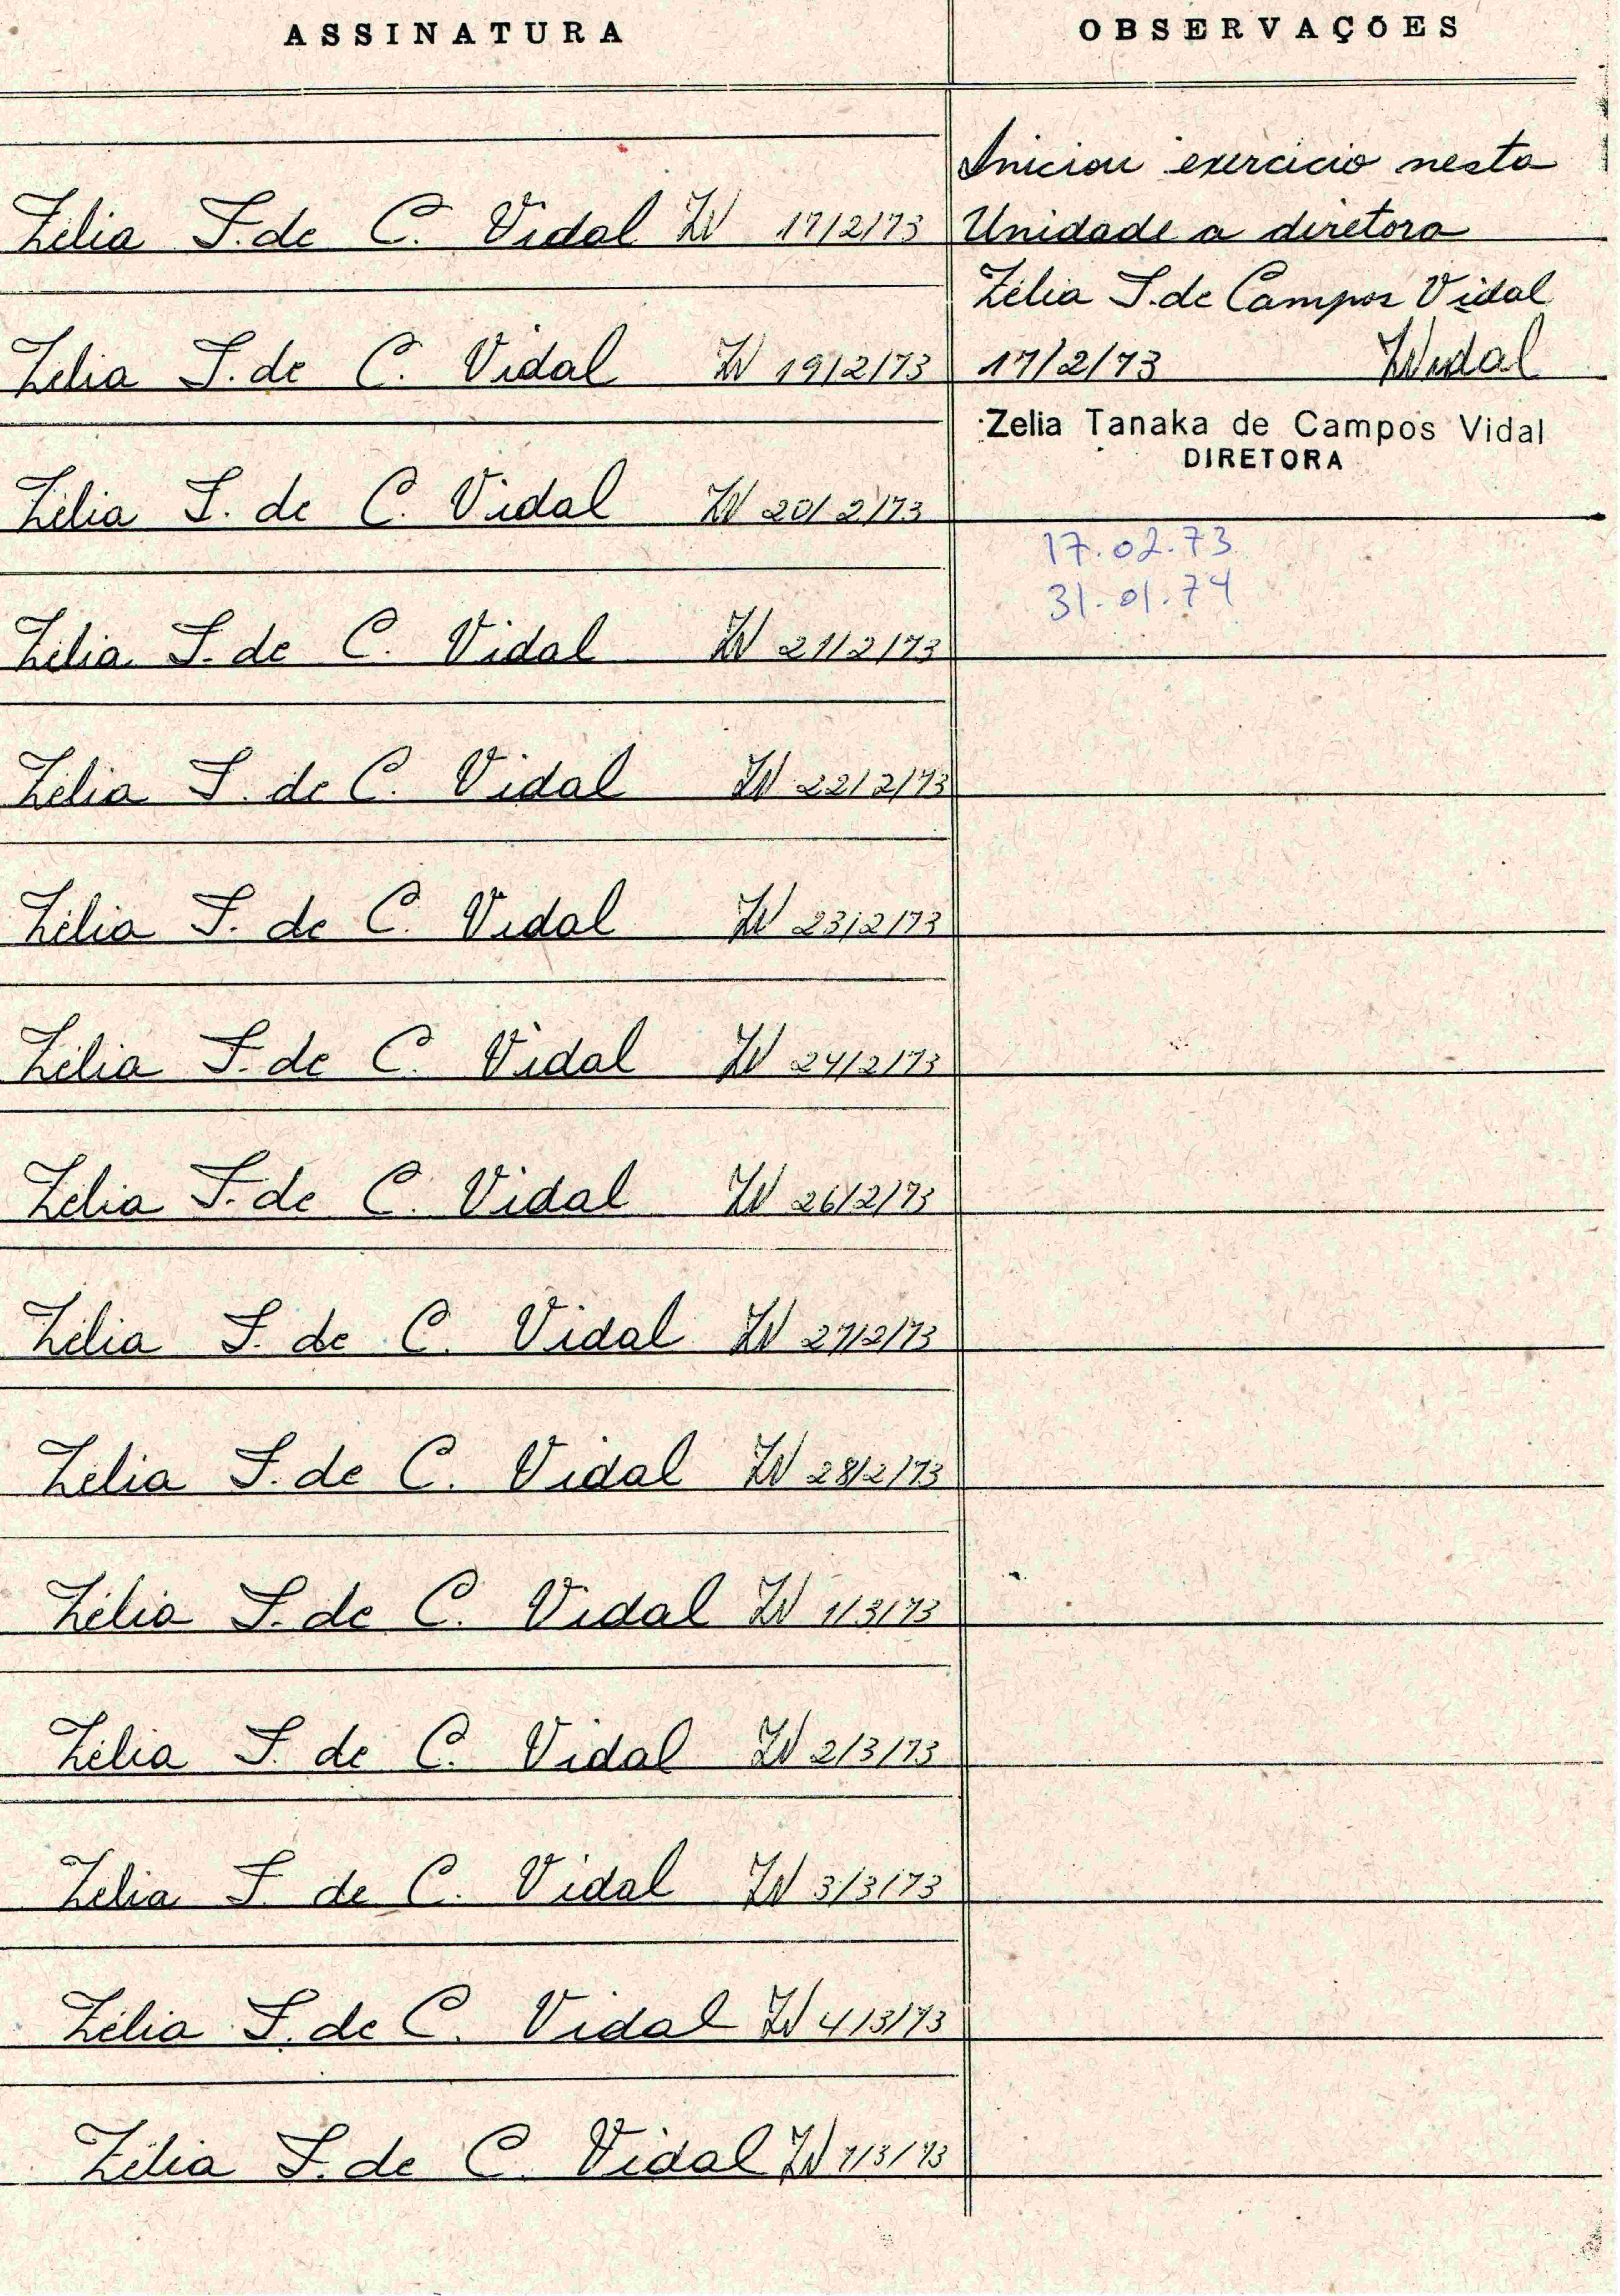 ASSINATURA
OBSERVAÇÕES
Iniciou exercício nesta
Zélia T. de C. Vidal ZV 17/2/73
Unidade a diretora
Zélia T. de Campos Vidal
Zélia T. de C. Vidal ZV 19/2/73
17/2/73 ZVidal
Zelia Tanaka de Campos Vidal
DIRETORA
Zélia T. de C. Vidal ZV 20/2/73
17.02.73
31.01.74
Zélia T. de C. Vidal ZV 21/2/73
Zélia T. de C. Vidal ZV 22/2/73
Zélia T. de C. Vidal ZV 23/2/73
Zélia T. de C. Vidal ZV 24/2/73
Zélia T. de C. Vidal ZV 26/2/73
Zélia T. de C. Vidal ZV 27/2/73
Zélia T. de C. Vidal ZV 28/2/73
Zélia T. de C. Vidal ZV 1/3/73
Zélia T. de C. Vidal ZV 2/3/73
Zélia T. de C. Vidal ZV 3/3/73
Zélia T. de C. Vidal ZV 4/3/73
Zélia T. de C. Vidal ZV 7/3/73